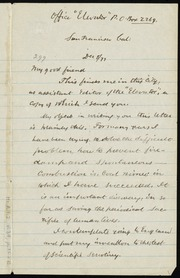 Office "Elevator" P.O. Box 2269.
San Francisco Cal.
Dec 8/71
My good friend
This finds me in this City,
as assistant Editor of the "Elevator", a
copy of which I send you.
My object in writing you this letter
is mainly this. For many years I
have been trying to solve the difficult
problem how to prevent fire-
damp and spontaneous
combustion in coal mines in
which I have succeeded. It
is an important discovery, in so
far as saving the periodical sac-
rifice of human life.
I contemplate going to England
and put my invention to the test
of scientific scrutiny.